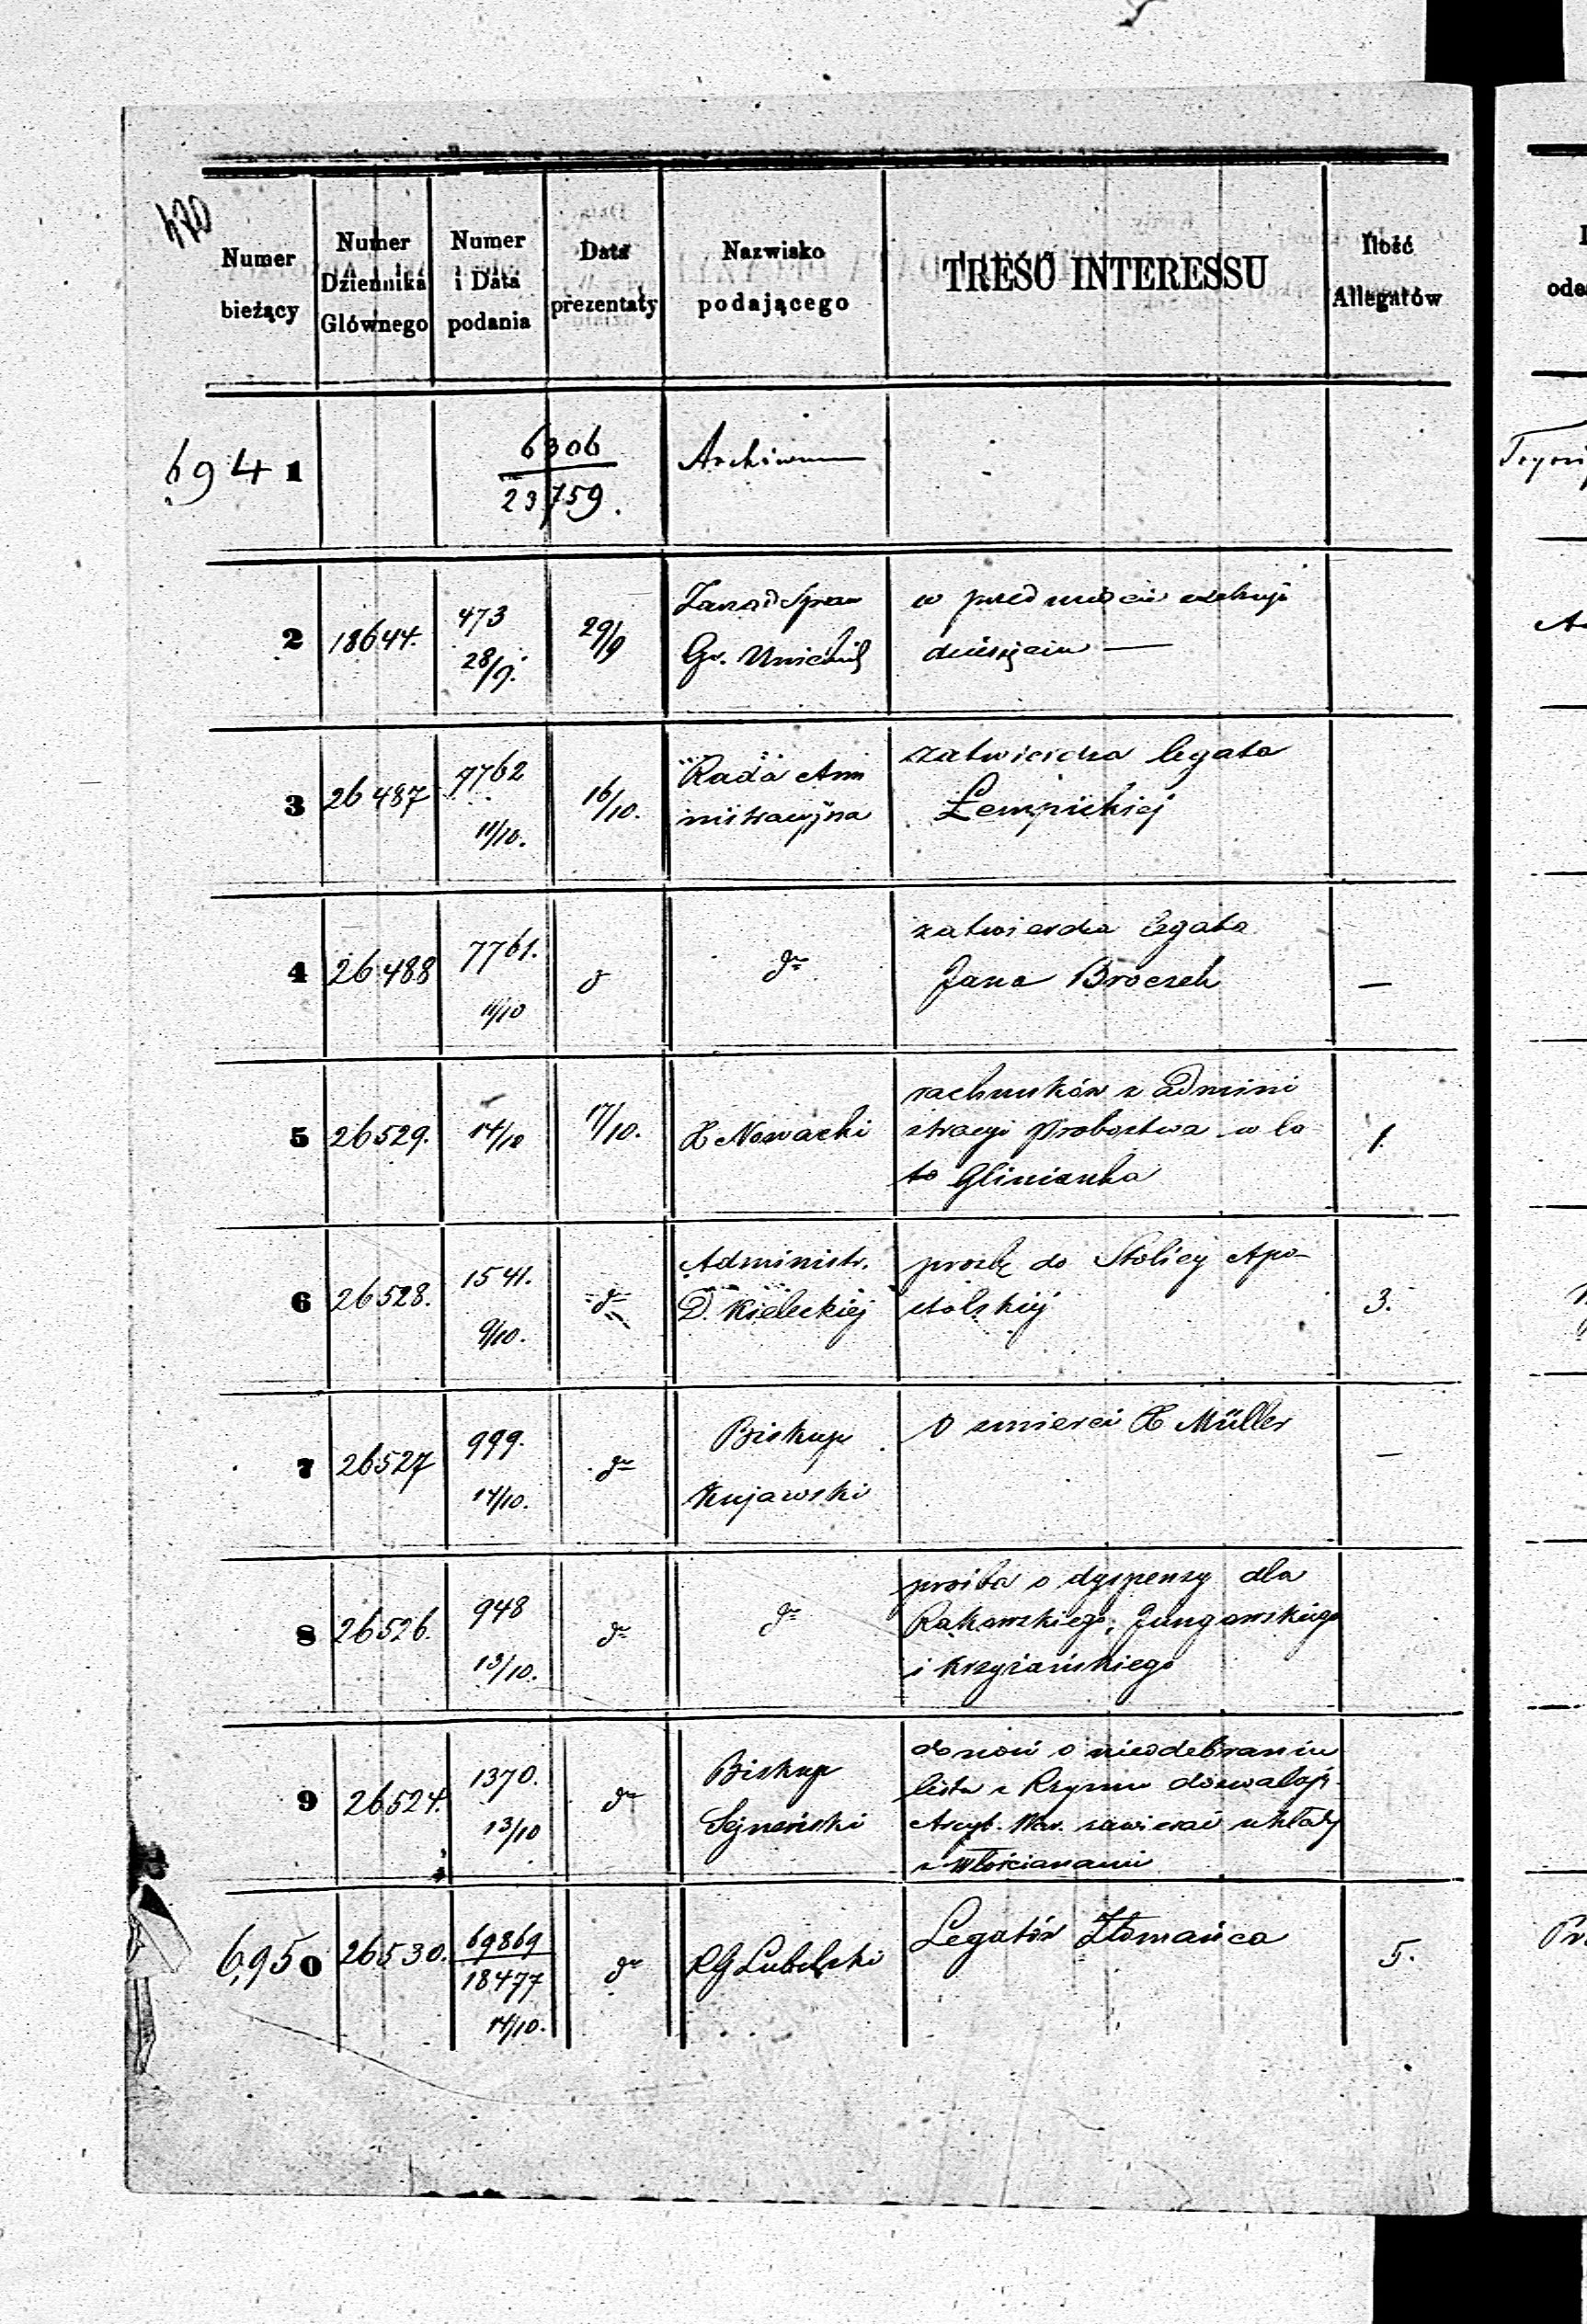 470
Numer bieżący
Numer Dziennika Głównego
Numer i Data podania
Data prezentaty
Nazwisko podającego
TREŚĆ INTERESSU
Ilość Allegatów
6941
6306
23759.
Archiwum
2
18644.
473
28/9.
29/9
Zarząd Spraw
Gr. Unickich
w przedmiocie
dziesięcin —
3
26487
7762
11/10.
16/10.
Rada Am
nistracyjna
zatwierdza legata
Łempickiej
4
26488
7761.
11/10
d
dto
zatwierdza legata
Jana Broczek
—
5
26529.
14/10
17/10.
X Nowacki
rachunków z admini
stracyi Probostwa w la
to Glinianka
1.
6
26528.
1541.
9/10.
dto
Administr.
D. Kieleckiej
prośbę do Stolicy Apo-
stolskiej
3.
7
26527
999.
14/10.
dto
Biskup
Kujawski
O śmierci X Müller
—
8
26526.
948
13/10.
dto
dto
prośba o dyspensy dla
Rakowskiego, Jungowskiego
i Krzyżańskiego
9
26524.
1370.
13/10
dto
Biskup
Sejneński
donosi o nieodebraniu
listu z Rzymu
Arcyb. War. zawierać układy
z włościanami
6950
26530.
69869
18477
14/10.
dto
RG Lubelski
Legatów Złomańca
5.